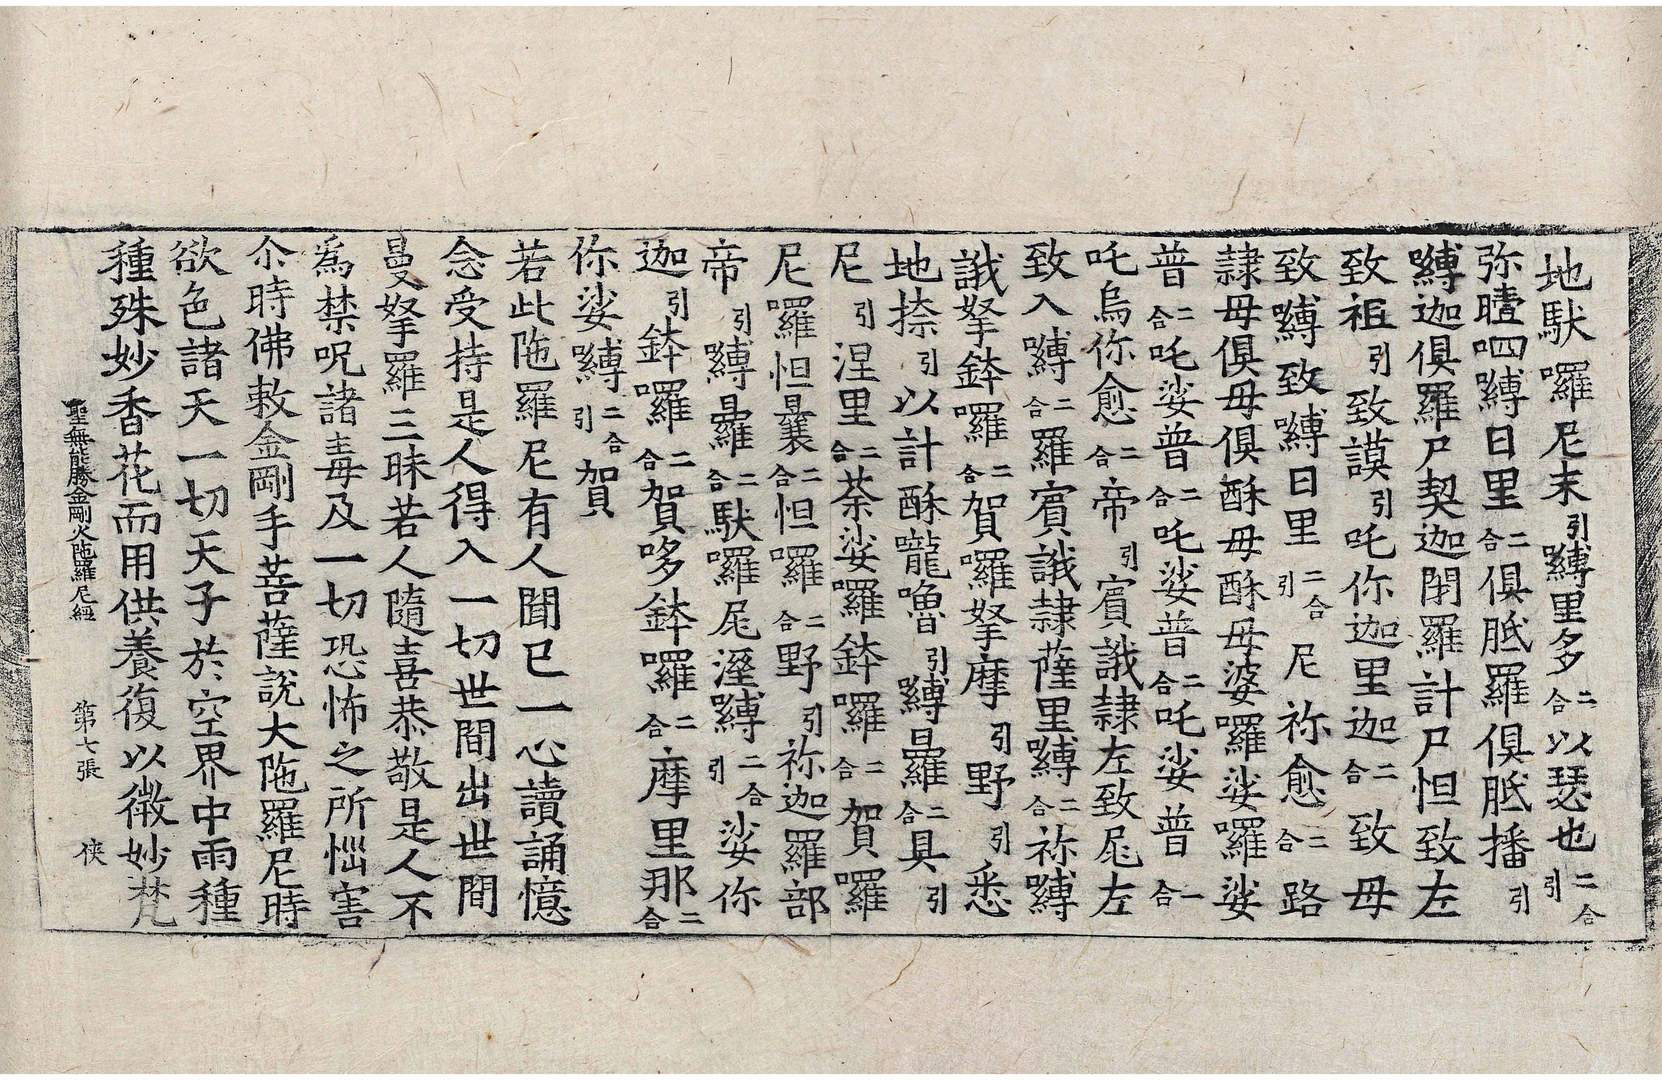 地馱囉尼末引嚩里多二合以瑟也二合引
弥曀呬嚩日里二合俱胝羅俱胝播引
嚩迦俱羅尸契迦閉羅計尸怛致左
致袓引致謨引吒你迦里迦二合致母
致嚩致嚩日里二合引尼祢愈二合路
隷母俱母俱酥母酥母婆囉娑囉娑
普二合吒娑普二合吒娑普二合吒娑普一合
吒烏你愈二合帝引賓誐隷左致尾左
致入嚩二合羅賓誐隷薩里嚩二合祢嚩
誐拏鉢囉二合賀囉拏摩引野引悉
地捺引以計酥嚨嚕引嚩曩二合具引
尼引涅里二合荼娑囉鉢囉二合賀囉
尼囉怛曩二合怛囉二合野引祢迦羅部
帝引嚩曩二合馱囉尾溼嚩二合引娑你
迦引鉢囉二合賀哆鉢囉二合摩里那二合
你娑嚩二合引賀
若此陁羅尼有人聞已一心讀誦憶
念受持是人得入一切世間出世間
曼拏羅三昧若人隨喜恭敬是人不
爲禁呪諸毒及一切恐怖之所惱害
尒時佛敕金剛手菩薩說大陁羅尼時
欲色諸天一切天子於空界中雨種
種殊妙香花而用供養復以微妙梵
聖無能勝金剛火陁羅尼經 第七張 俠